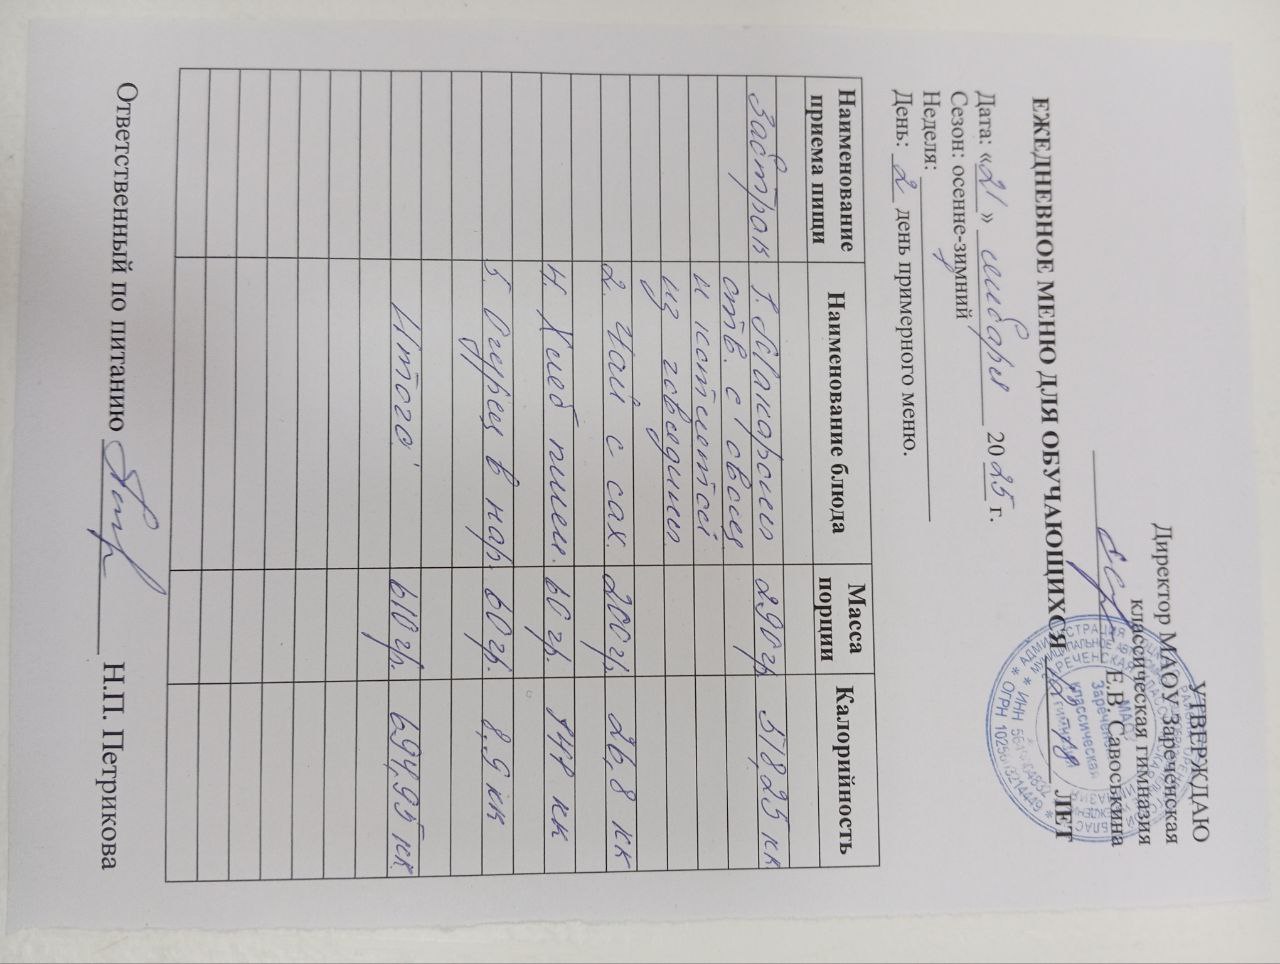 УТВЕРЖДАЮ
Директор МАОУ Зареченская
классическая гимназия
Е.В. Савоськина
ЕЖЕДНЕВНОЕ МЕНЮ ДЛЯ ОБУЧАЮЩИХСЯ ЛЕТ
Дата: «21» 2025 г.
Сезон: осенне-зимний
Неделя:
День: 2 день примерного меню.
Наименование приема пищи Наименование блюда Масса порции Калорийность
Завтрак 1. 290гр 578,25 кк
отв. с овощ
и котлетой
из говядины
2. Чай с сах. 200гр. 26,8 кк
4. Хлеб пшен. 60 гр. кк
5. Огурец в нар. 60гр. 8,9 кк
Итого: 610гр. 694,95 кк
Ответственный по питанию Н.П. Петрикова